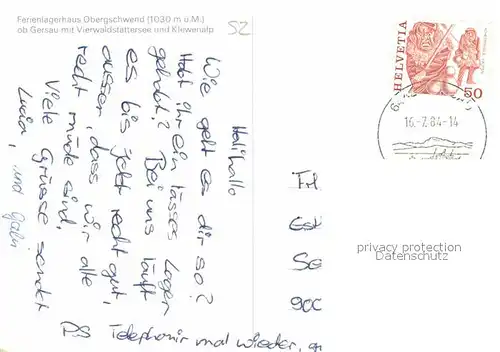 Ferienlagerhaus Obergschwend (1030 m ü.M.)
ob Gersau mit Vierwaldstättersee und Klewenalp
52
Hali hallo
Wie geht es dir so?
Habt ihr ein tasses Lager
gehabt? Bei uns läuft
es bis jetzt recht gut,
ausser, dass wir alle
recht müde sind.
Viele Grüsse sendet
Lucia, und Gabi
PS Telephonir mal wieder,
HELVETIA
50
16.-7.84-14
Frl
Se
900
privacy protection
Datenschutz